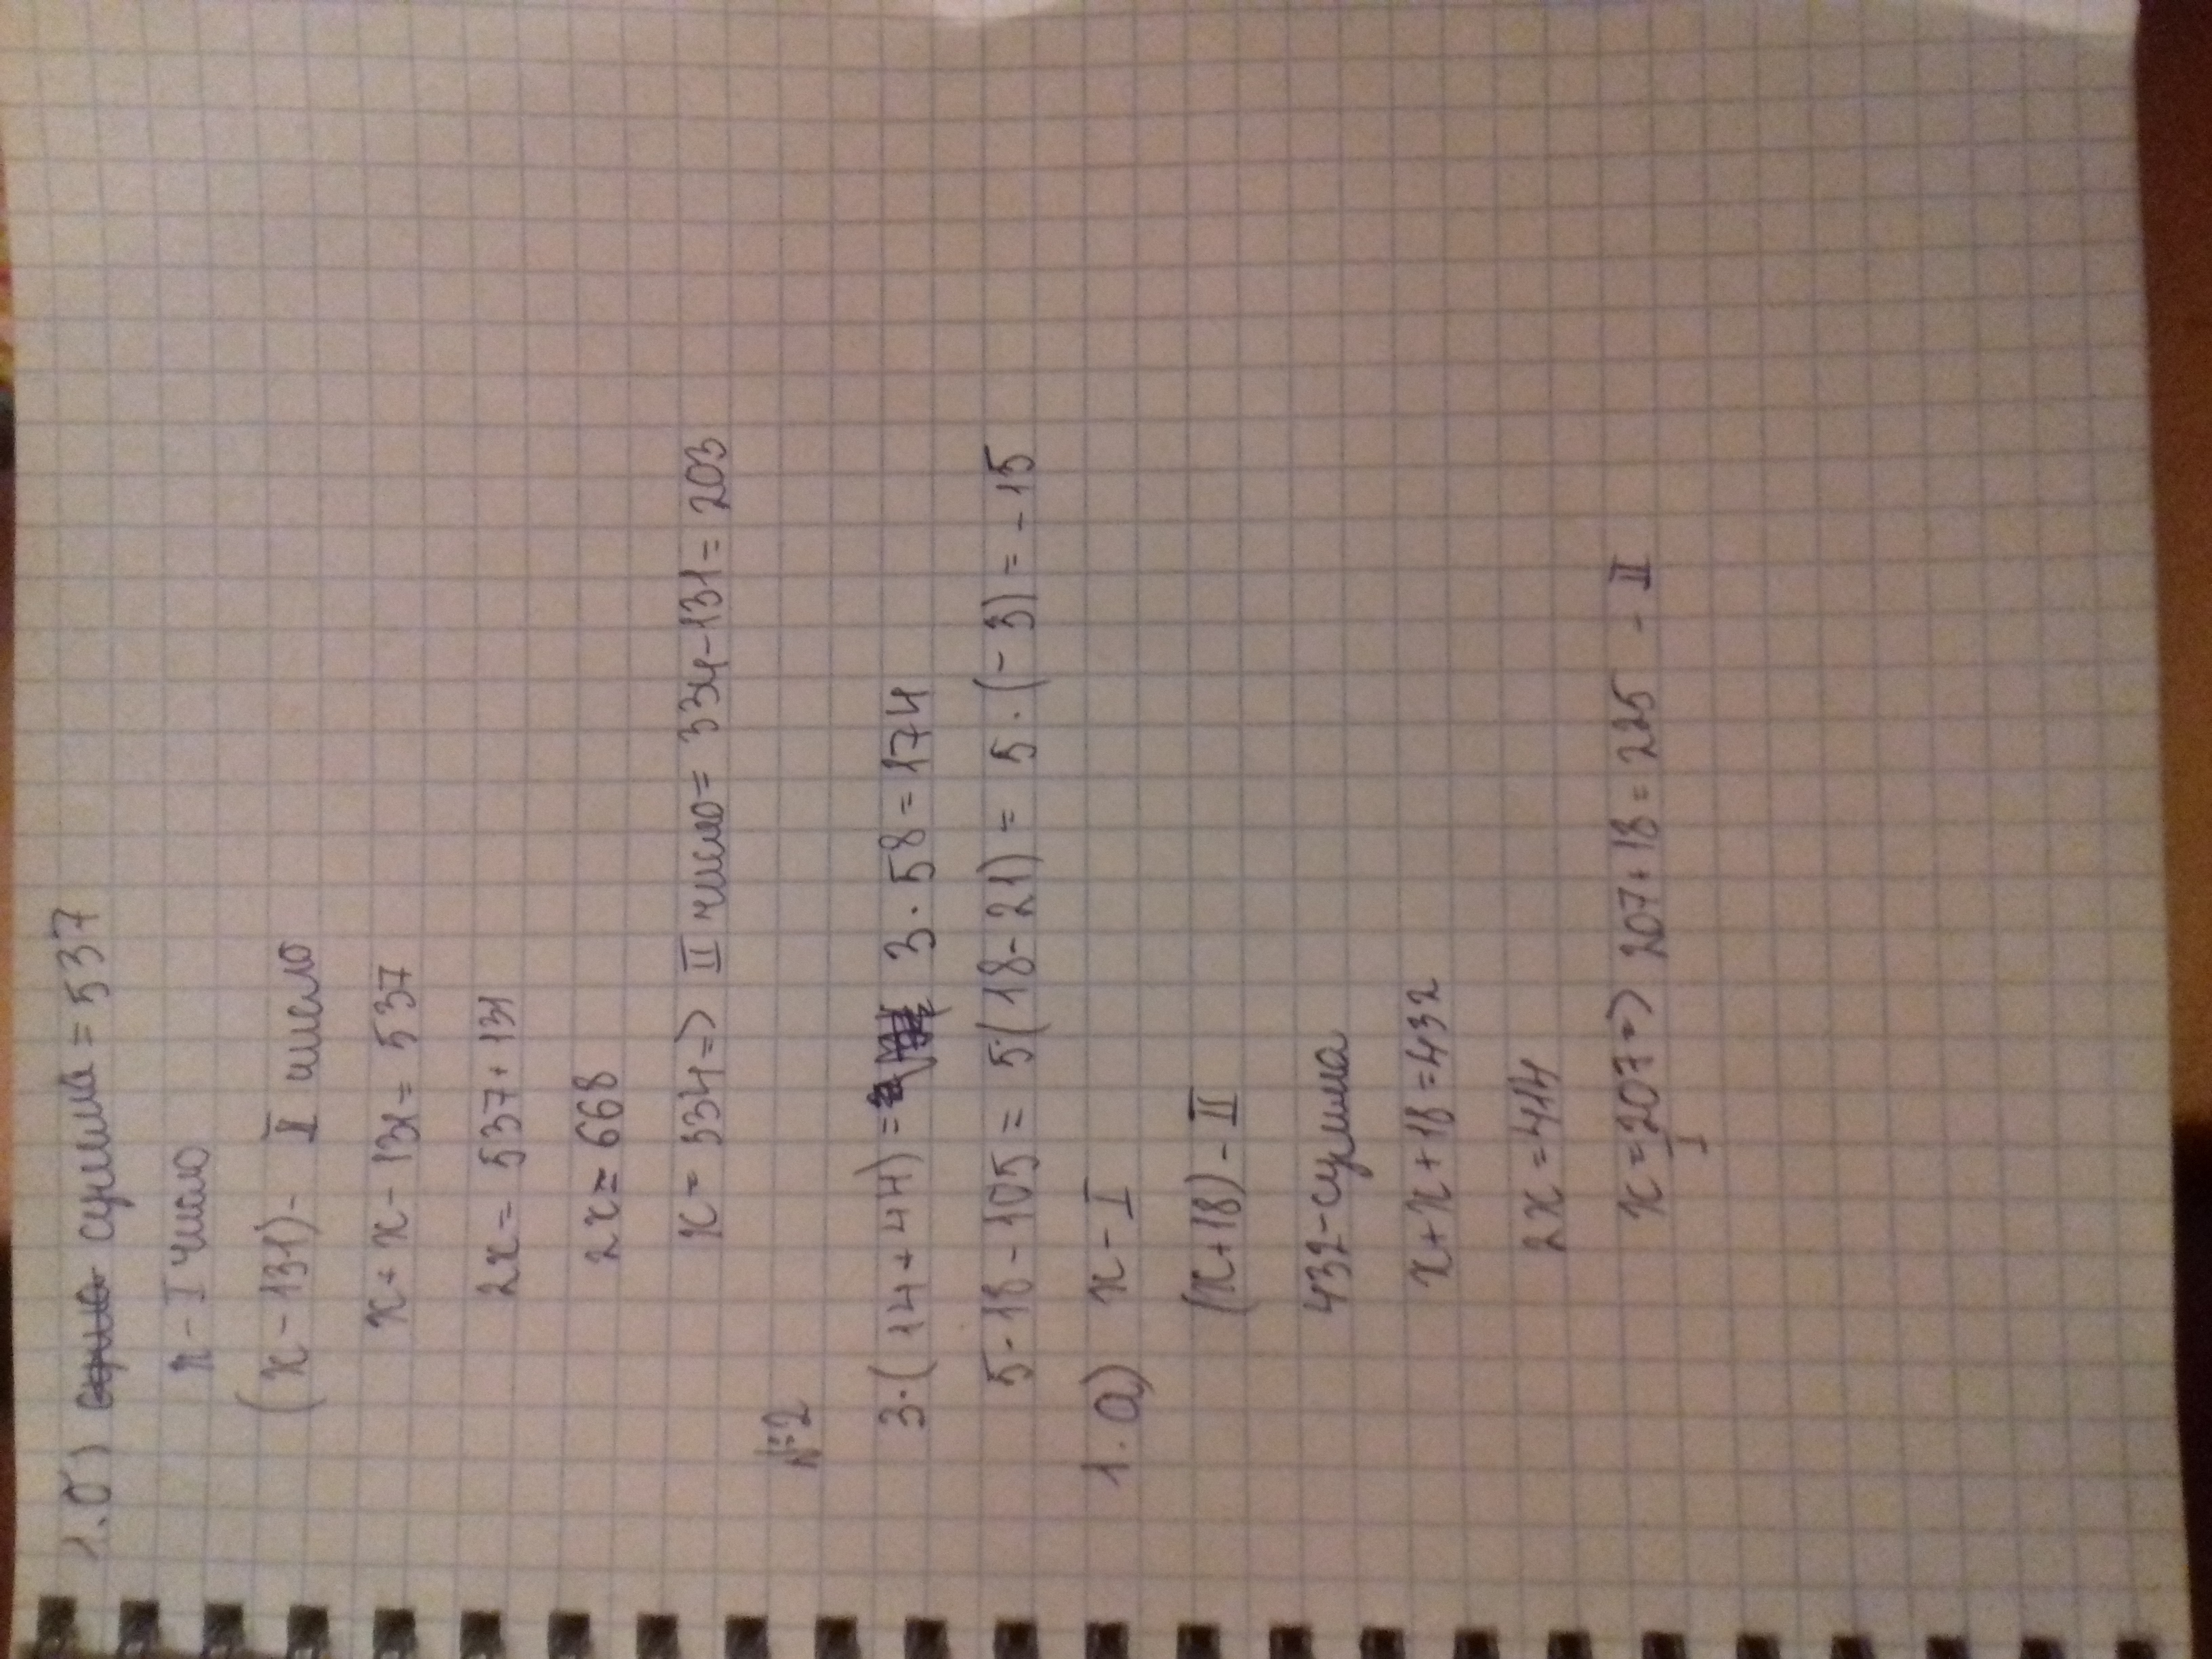 1. б) сумма = 537
х - I число
(х - 131) - II число
х + х - 131 = 537
2х = 537 + 131
2х = 668
х = 334 => II число = 334 - 131 = 203
№2
3·(14 + 44) = 3 · 58 = 174
5·18 - 105 = 5(18 - 21) = 5·(-3) = -15
1. а) х - I
(х + 18) - II
432 - сумма
х + х + 18 = 432
2х = 414
х = 207 => 207 + 18 = 225 - II
I